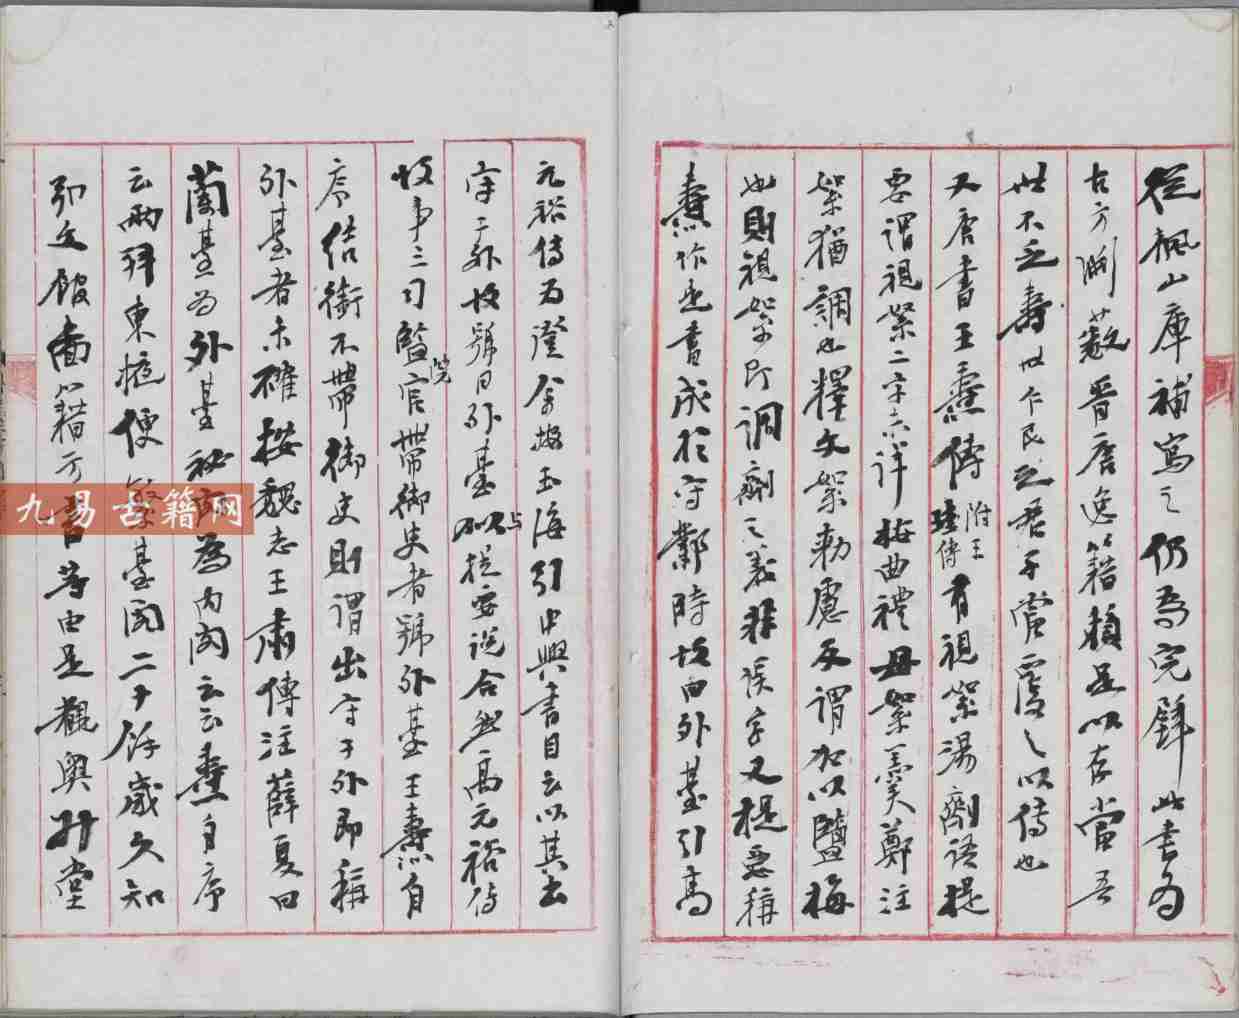 從楓山庫補寫之仍為完璧此書為
古方淵藪晉唐逸籍賴是以存當吾
世不乏壽世仁民之君子當覆之以傳也
又唐書王燾傳附王珪傳有視絮湯劑語提
要謂視絮二字未詳按曲禮毋絮羹鄭注
絮猶調也釋文絮勅慮反謂加以鹽梅
也則視絮即調劑之義非誤字又提要稱
燾作是書成於守鄴時故曰外臺引高
元裕傳為證余按玉海引中興書目云以其出
守于外故號曰外臺與提要說合然高元裕傳
故事三司監院官帶御史者號外臺王燾自
序結銜不帶御史則謂出守于外即稱
外臺者未確按魏志王肅傳注薛夏曰
蘭臺為外臺祕閣為內閣云云燾自序
云兩拜東掖便繁臺閣二十餘歲久知
弘文館圖籍方書等由是覩奧升堂
九易古籍网